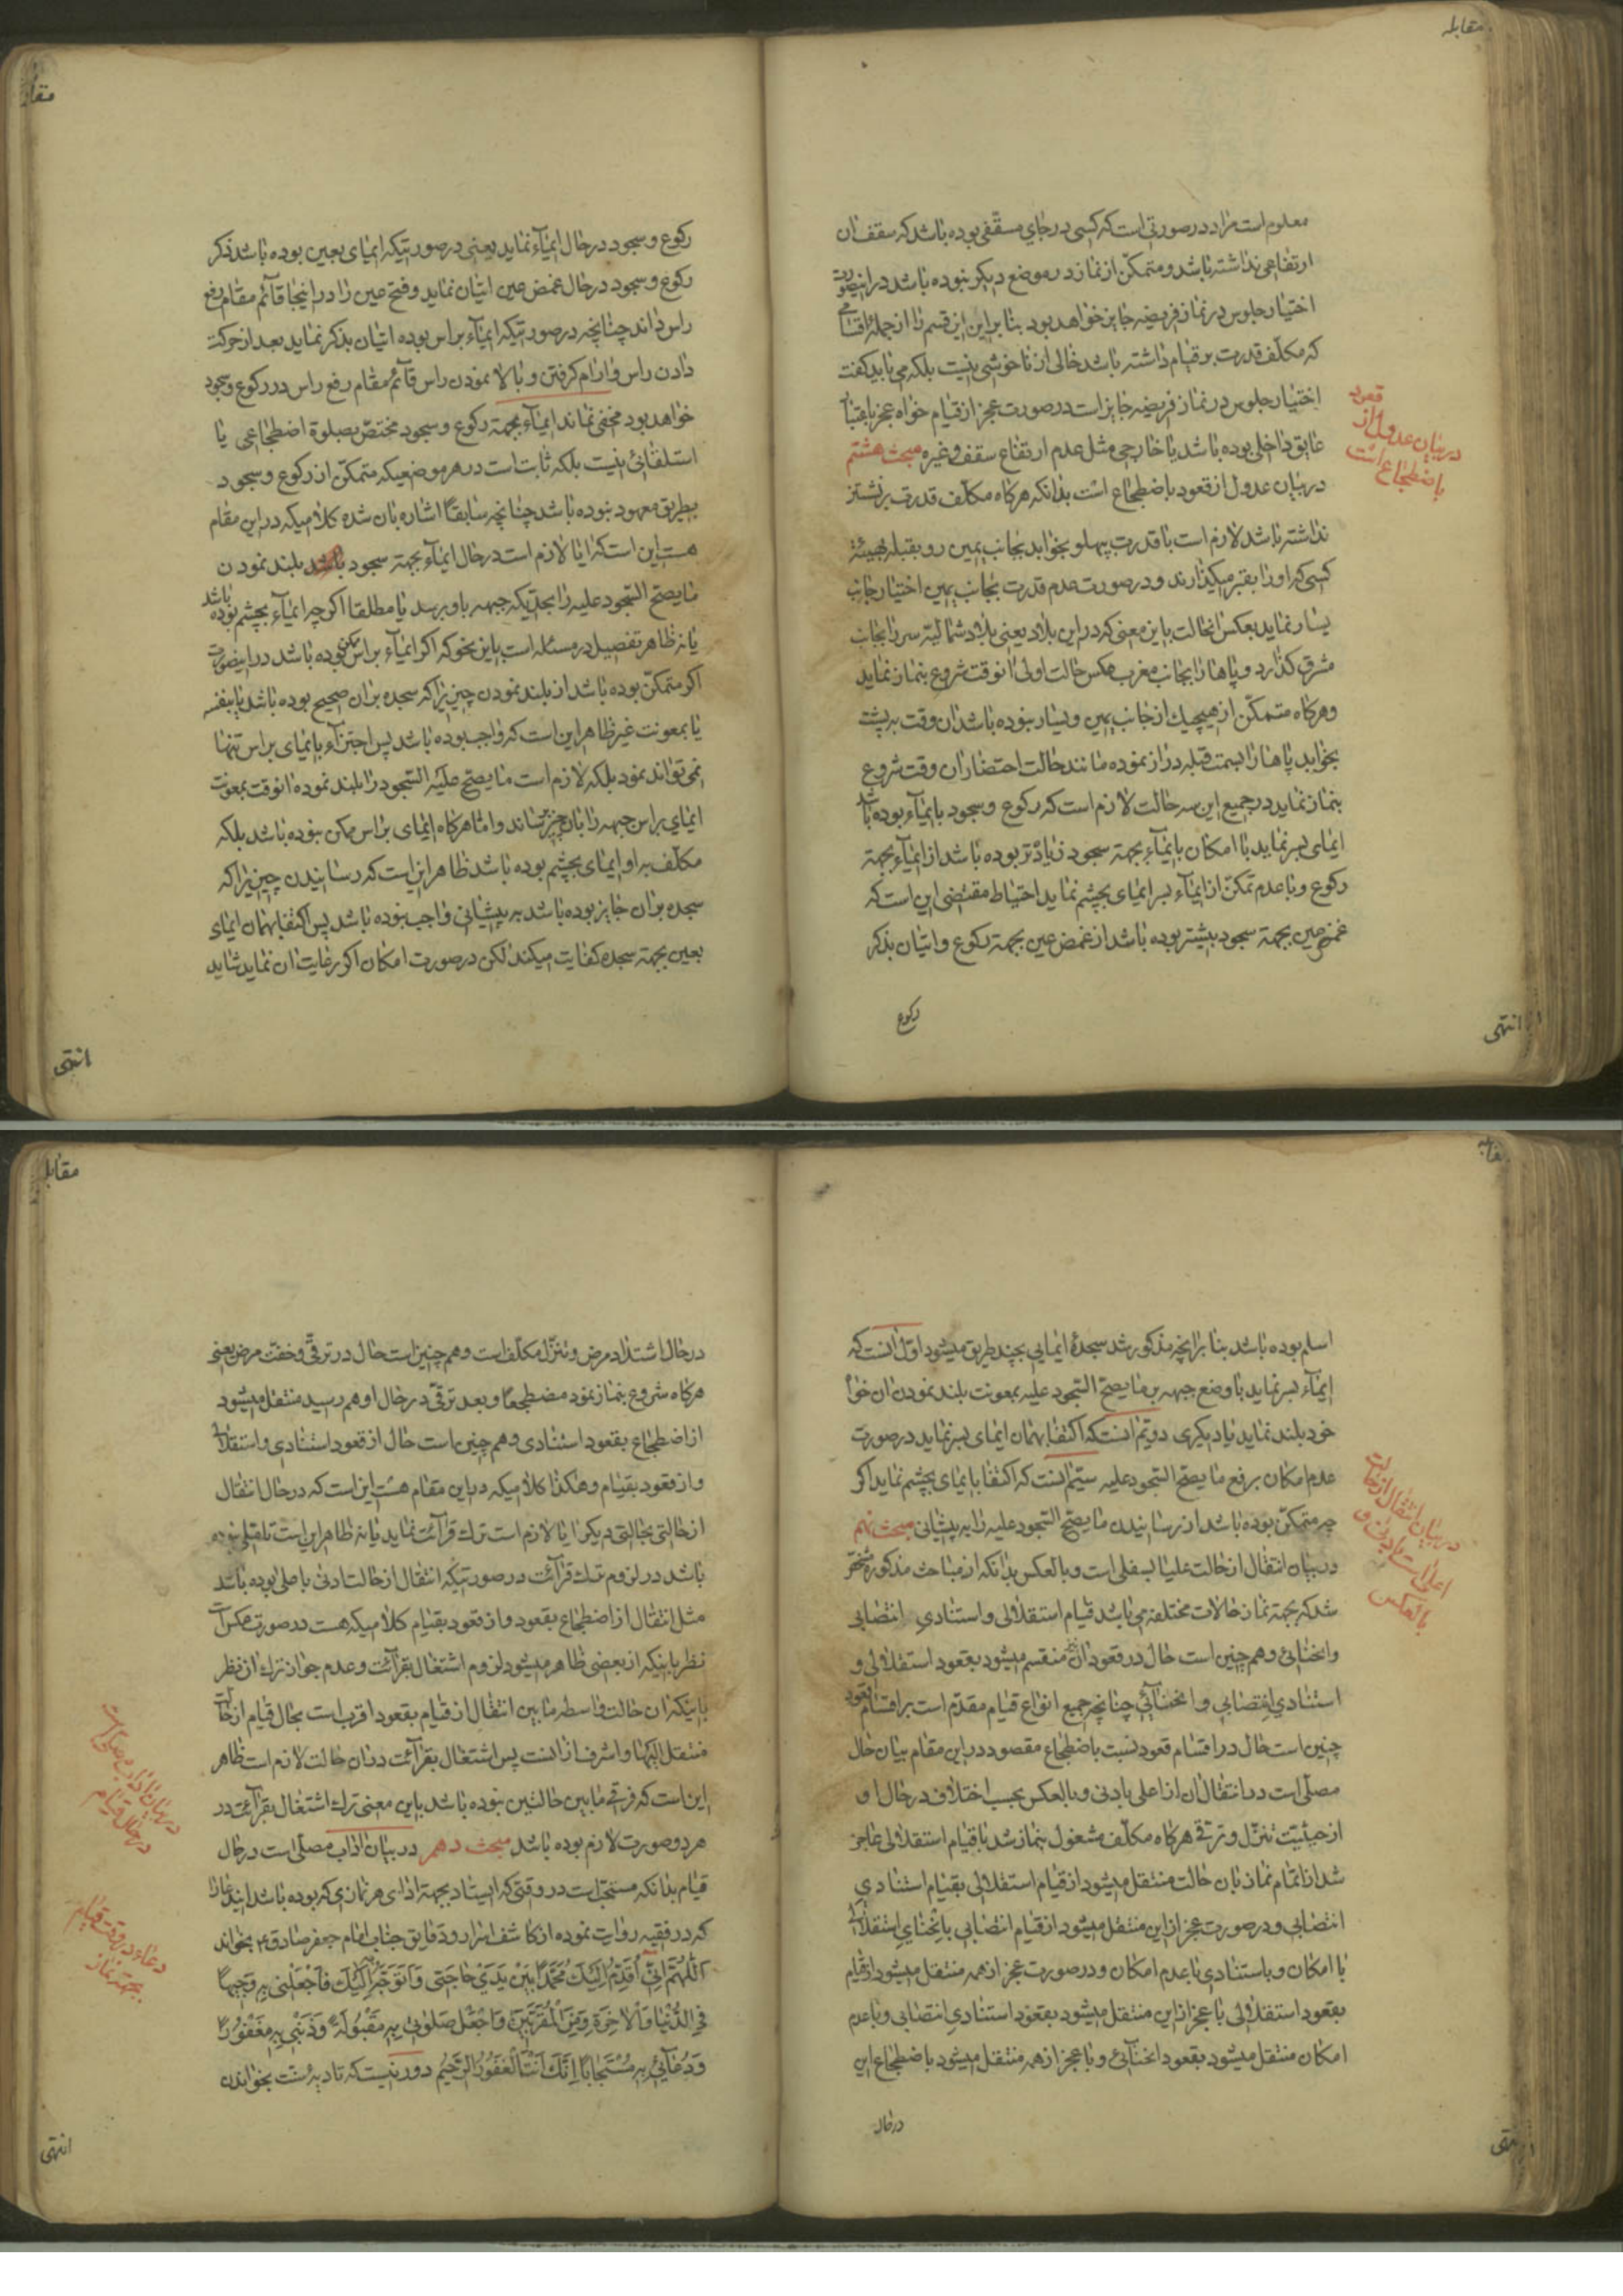 مقابله
معلوم است مراد در صورتی است که کسی در جای مسقّفی بوده باشد که سقف ان
ارتفاعی نداشته باشد و متمکّن از نماز در موضع دیکر نبوده باشد در اینصورت
اختیار جلوس در نماز فریضه جایز خواهد بود بنا براین این قسم را از جمله اقسامی
که مکلّف قدرت بر قیام داشته باشد خالی از ناخوشی نیست بلکه می باید کفت
اختیار جلوس در نماز فریضه جایز است در صورت عجز از قیام خواه عجز باعتبار
عایق داخلی بوده باشد یا خارجی مثل عدم ارتفاع سقف و غیره مبحث هشتم
در بیان عدول از قعود باضطجاع است بدانکه هرکاه مکلّف قدرت بر نشستن
نداشته باشد لازم است با قدرت پهلو بخوابد بجانب یمین رو بقبله بهیئة
کسی که او را بقبر میکذارند و در صورت عدم قدرت بجانب یمین اختیار جانب
یسار نماید بعکس انحالت باین معنی که در این بلاد یعنی بلاد شمالیّه سر را بجانب
مشرق کذارد و پاها را بجانب مغرب عکس حالت اولی انوقت شروع بنماز نماید
و هرکاه متمکّن از هیچیك از جانب یمین و یسار نبوده باشد ان وقت به پشت
بخوابد پاها را بسمت قبله دراز نموده مانند حالت احتضار ان وقت شروع
بنماز نماید در جمیع این سه حالت لازم است که رکوع و سجود بایماء بوده باشد
ایمای بسر نماید با امکان بایماء بجهة سجود زیادتر بوده باشد از ایماء بجهة
رکوع و با عدم تمکّن از ایماء بسر ایمای بچشم نماید احتیاط مقتضی این است که
غمض عین بجهة سجود بیشتر بوده باشد از غمض عین بجهة رکوع و اتیان بذکر
رکوع
انتهی
در بیان عدول از
قعود
باضطجاع است
رکوع و سجود در حال ایماء نماید یعنی در صورتیکه ایمای بعین بوده باشد ذکر
رکوع و سجود در حال غمض عین اتیان نماید و فتح عین را در اینجا قائم مقام رفع
راس داند چنانچه در صورتیکه ایماء براس بوده اتیان بذکر نماید بعد از حرکت
دادن راس و ارام کرفتن و بالا نمودن راس قائم مقام رفع راس در رکوع و سجود
خواهد بود مخفی نماند ایماء بجهة رکوع و سجود مختصّ بصلوة اضطجاعی یا
استلقائی نیست بلکه ثابت است در هر موضعیکه متمکّن از رکوع و سجود
بطریق معهود نبوده باشد چنانچه سابقاً اشاره بان شده کلامیکه در این مقام
هست این است که ایا لازم است در حال ایماء بجهة سجود بلند نمودن
ما یصحّ السّجود علیه را بحدّیکه جبهه باو برسد یا مطلقا اکرچه ایماء بچشم بوده باشد
یا نه ظاهر تفصیل در مسئله است باین نحو که اکر ایماء براس ممکن بوده باشد در اینصورت
اکر متمکّن بوده باشد از بلند نمودن چیزیرا که سجده بران صحیح بوده باشد یا بنفسه
یا بمعونت غیر ظاهر این است که واجب بوده باشد پس اجتزاء بایمای براس تنها
نمی تواند نمود بلکه لازم است ما یصحّ علیه السّجود را بلند نموده انوقت بمعونت
ایمای براس جبهه را بان چیز رساند و امّا هرکاه ایمای براس ممکن نبوده باشد بلکه
مکلّف به او ایمای بچشم بوده باشد ظاهر این است که رسانیدن چیزیرا که
سجده بران جایز بوده باشد به پیشانی واجب نبوده باشد پس اکتفا بهمان ایمای
بعین بجهة سجده کفایت میکند لکن در صورت امکان اکر رعایت ان نماید شاید
انتهی
مقابله
اسلم بوده باشد بنا برانچه مذکور شد سجدهٔ ایمایی بچند طریق میشود اوّل انست که
ایماء بسر نماید با وضع جبهه بر ما یصحّ السّجود علیه بمعونت بلند نمودن ان خواه
خود بلند نماید یا دیکری دویّم انست که اکتفا بهمان ایمای بسر نماید در صورت
عدم امکان برفع ما یصحّ السّجود علیه سیّم انست که اکتفا بایمای بچشم نماید اکر
چه متمکّن بوده باشد از رسانیدن ما یصحّ السّجود علیه را به پیشانی مبحث نهم
در بیان انتقال از حالت علیا بسفلی است و بالعکس بدانکه از مباحث مذکوره مشخّص
شد که بجهة نماز حالات مختلفه می باشد قیام استقلالی و استنادی انتصابی
وانحنائی و هم چنین است حال در قعود ان منقسم میشود بقعود استقلالی و
استنادی انتصابی و انحنائی چنانچه جمیع انواع قیام مقدّم است بر اقسام قعود
چنین است حال در اقسام قعود نسبت باضطجاع مقصود در این مقام بیان حال
مصلّی است در انتقال ان از اعلی بادنی و بالعکس بحسب اختلاف در حال او
از حیثیّت تنزّل و ترقّی هرکاه مکلّف مشغول بنماز شد با قیام استقلالی عاجز
شد از اتمام نماز بان حالت منتقل میشود از قیام استقلالی بقیام استنادی
انتصابی و در صورت عجز از این منتقل میشود از قیام انتصابی بانحنای استقلالی
با امکان و باستنادی با عدم امکان و در صورت عجز از همه منتقل میشود از قیام
بقعود استقلالی با عجز از این منتقل میشود بقعود استنادی انتصابی و با عدم
امکان منتقل میشود بقعود انحنائی و با عجز از همه منتقل میشود باضطجاع این
در حال
در بیان انتقال از حالت
اعلی است بادنی و
بالعکس
مقابله
در حال اشتداد مرض و تنزّل مکلّف است و هم چنین است حال در ترقّی و خفّت مرض یعنی
هرکاه شروع بنماز نمود مضطجعاً و بعد ترقّی در حال او هم رسید منتقل میشود
از اضطجاع بقعود استنادی و هم چنین است حال از قعود استنادی و استقلالی
و از قعود بقیام و هکذا کلامیکه در این مقام هست این است که در حال انتقال
از حالتی بحالتی دیکر ایا لازم است ترك قرائت نماید یا نه ظاهر این است تاملی نبوده
باشد در لزوم ترك قرائت در صورتیکه انتقال از حالت ادنی باعلی بوده باشد
مثل انتقال از اضطجاع بقعود و از قعود بقیام کلامیکه هست در صورت عکس است
نظر باینکه از بعضی ظاهر میشود لزوم اشتغال بقرائت و عدم جواز ترك ان نظر
باینکه ان حالت واسطه مابین انتقال از قیام بقعود اقرب است بحال قیام از حالت
منتقل الیها و اشرف از انست پس اشتغال بقرائت در ان حالت لازم است ظاهر
این است که فرقی مابین حالتین نبوده باشد باین معنی ترك اشتغال بقرائت در
هر دو صورت لازم بوده باشد مبحث دهم در بیان اداب مصلّی است در حال
قیام بدانکه مستحبّ است در وقتی که ایستاد بجهة ادای هر نمازی که بوده باشد این دعا را
که در فقیه روایت نموده از کاشف اسرار و دقایق جناب امام جعفر صادق ع بخواند
اَللّٰهُمَّ اِنّی اُقَدِّمُ اِلَیْكَ مُحَمَّداً بَیْنَ یَدَیْ حاجَتی وَ اَتَوَجَّهُ بِهِ اِلَیْكَ فَاجْعَلْنی بِهِ وَجیهاً
فِی الدُّنْیا وَ الْاٰخِرَةِ وَ مِنَ الْمُقَرَّبینَ وَ اجْعَلْ صَلوتی بِهِ مَقْبُولَةً وَ ذَنْبی بِهِ مَغْفُوراً
وَ دُعائی بِهِ مُسْتَجاباً اِنَّكَ اَنْتَ الْغَفُورُ الرَّحیمُ دور نیست که تادیه سنّت بخواندن
در بیان اداب مصلّی است
در حال قیام
دعاء در وقت قیام
بجهة نماز
انتهی